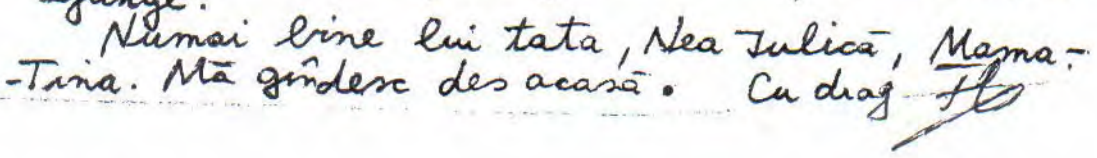 ajunge.
Numai bine lui tata, Nea Iulică, Mama-
-Tina. Mă gîndesc des acasă. Cu drag